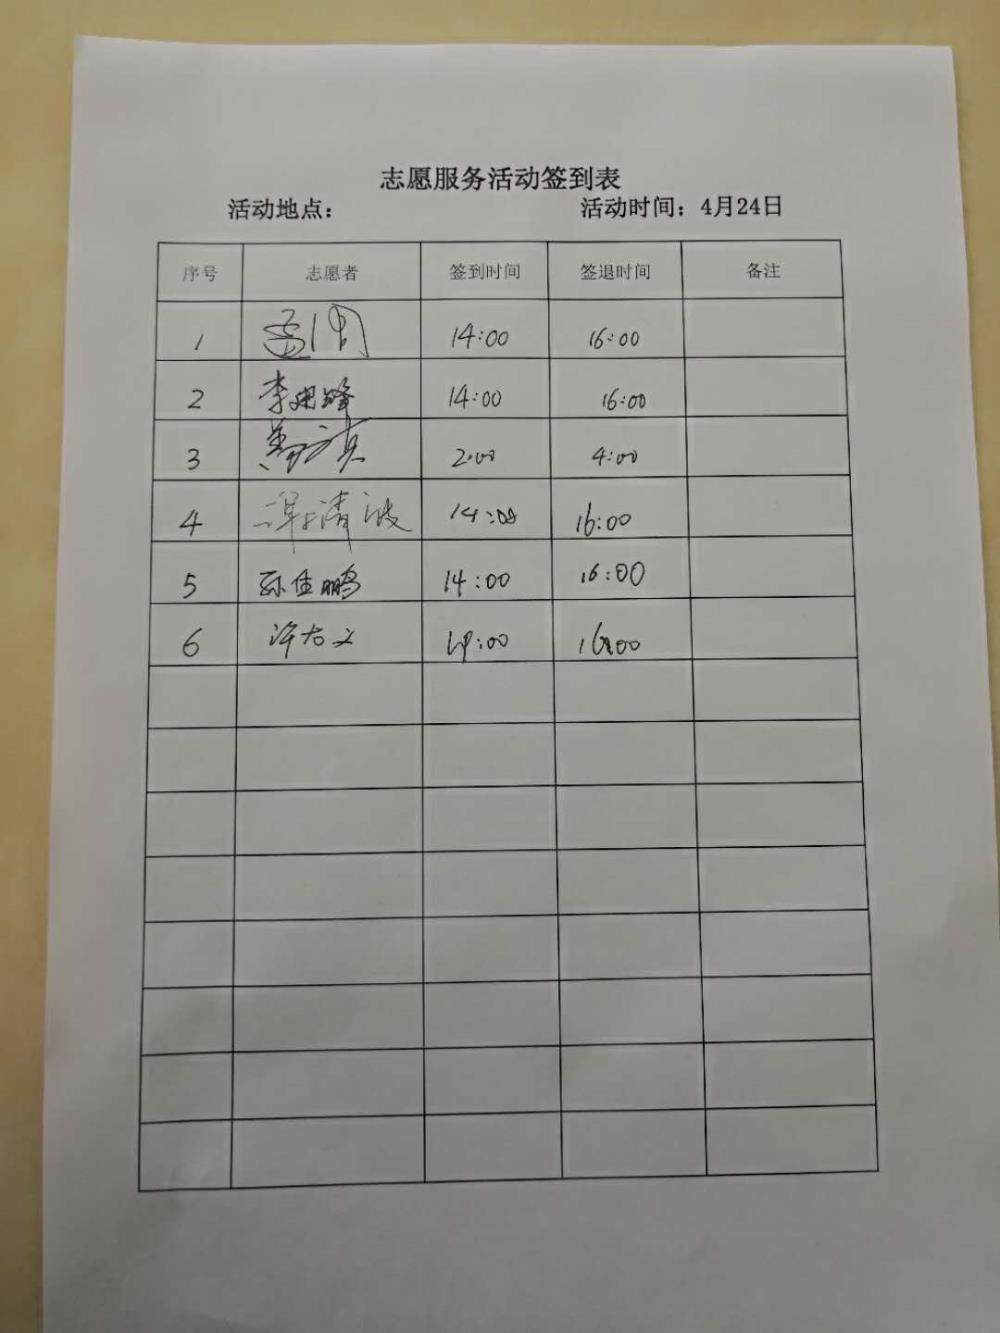 志愿服务活动签到表
活动地点： 活动时间：4月24日
序号 志愿者 签到时间 签退时间 备注
1 14:00 16:00
2 李建锋 14:00 16:00
3 2:00 4:00
4 谭清波 14:00 16:00
5 孙佳鹏 14:00 16:00
6 许志文 14:00 16:00